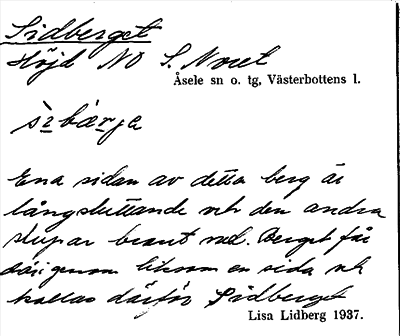 Sidberget
Höjd NO S. Noret
Åsele sn o. tg, Västerbottens l.
Ena sidan av detta berg är
långsluttande och den andra
stupar brant ned. Berget får
därigenom liksom en sida och
kallas därför Sidberget
Lisa Lidberg 1937.